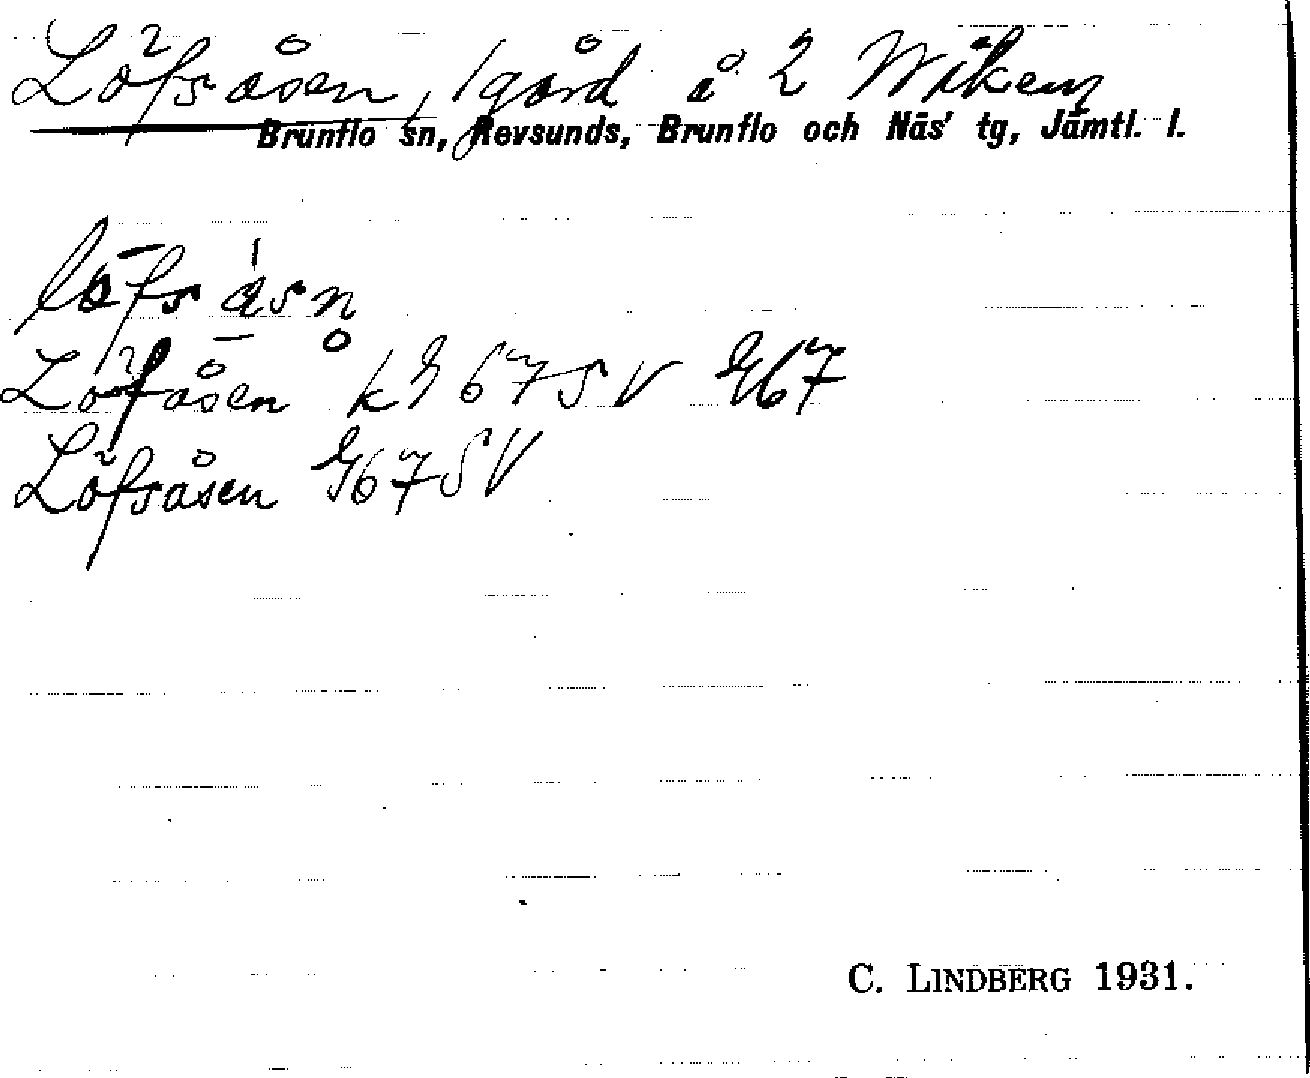 Löfsåsen, 1 gård å 2 Wiken
Brunflo sn, Revsunds, Brunflo och Näs' tg, Jämtl. l.
löfsåsn
Löfåsen kG 67 SV G67
Löfsåsen G67SV
C. LINDBERG 1931.